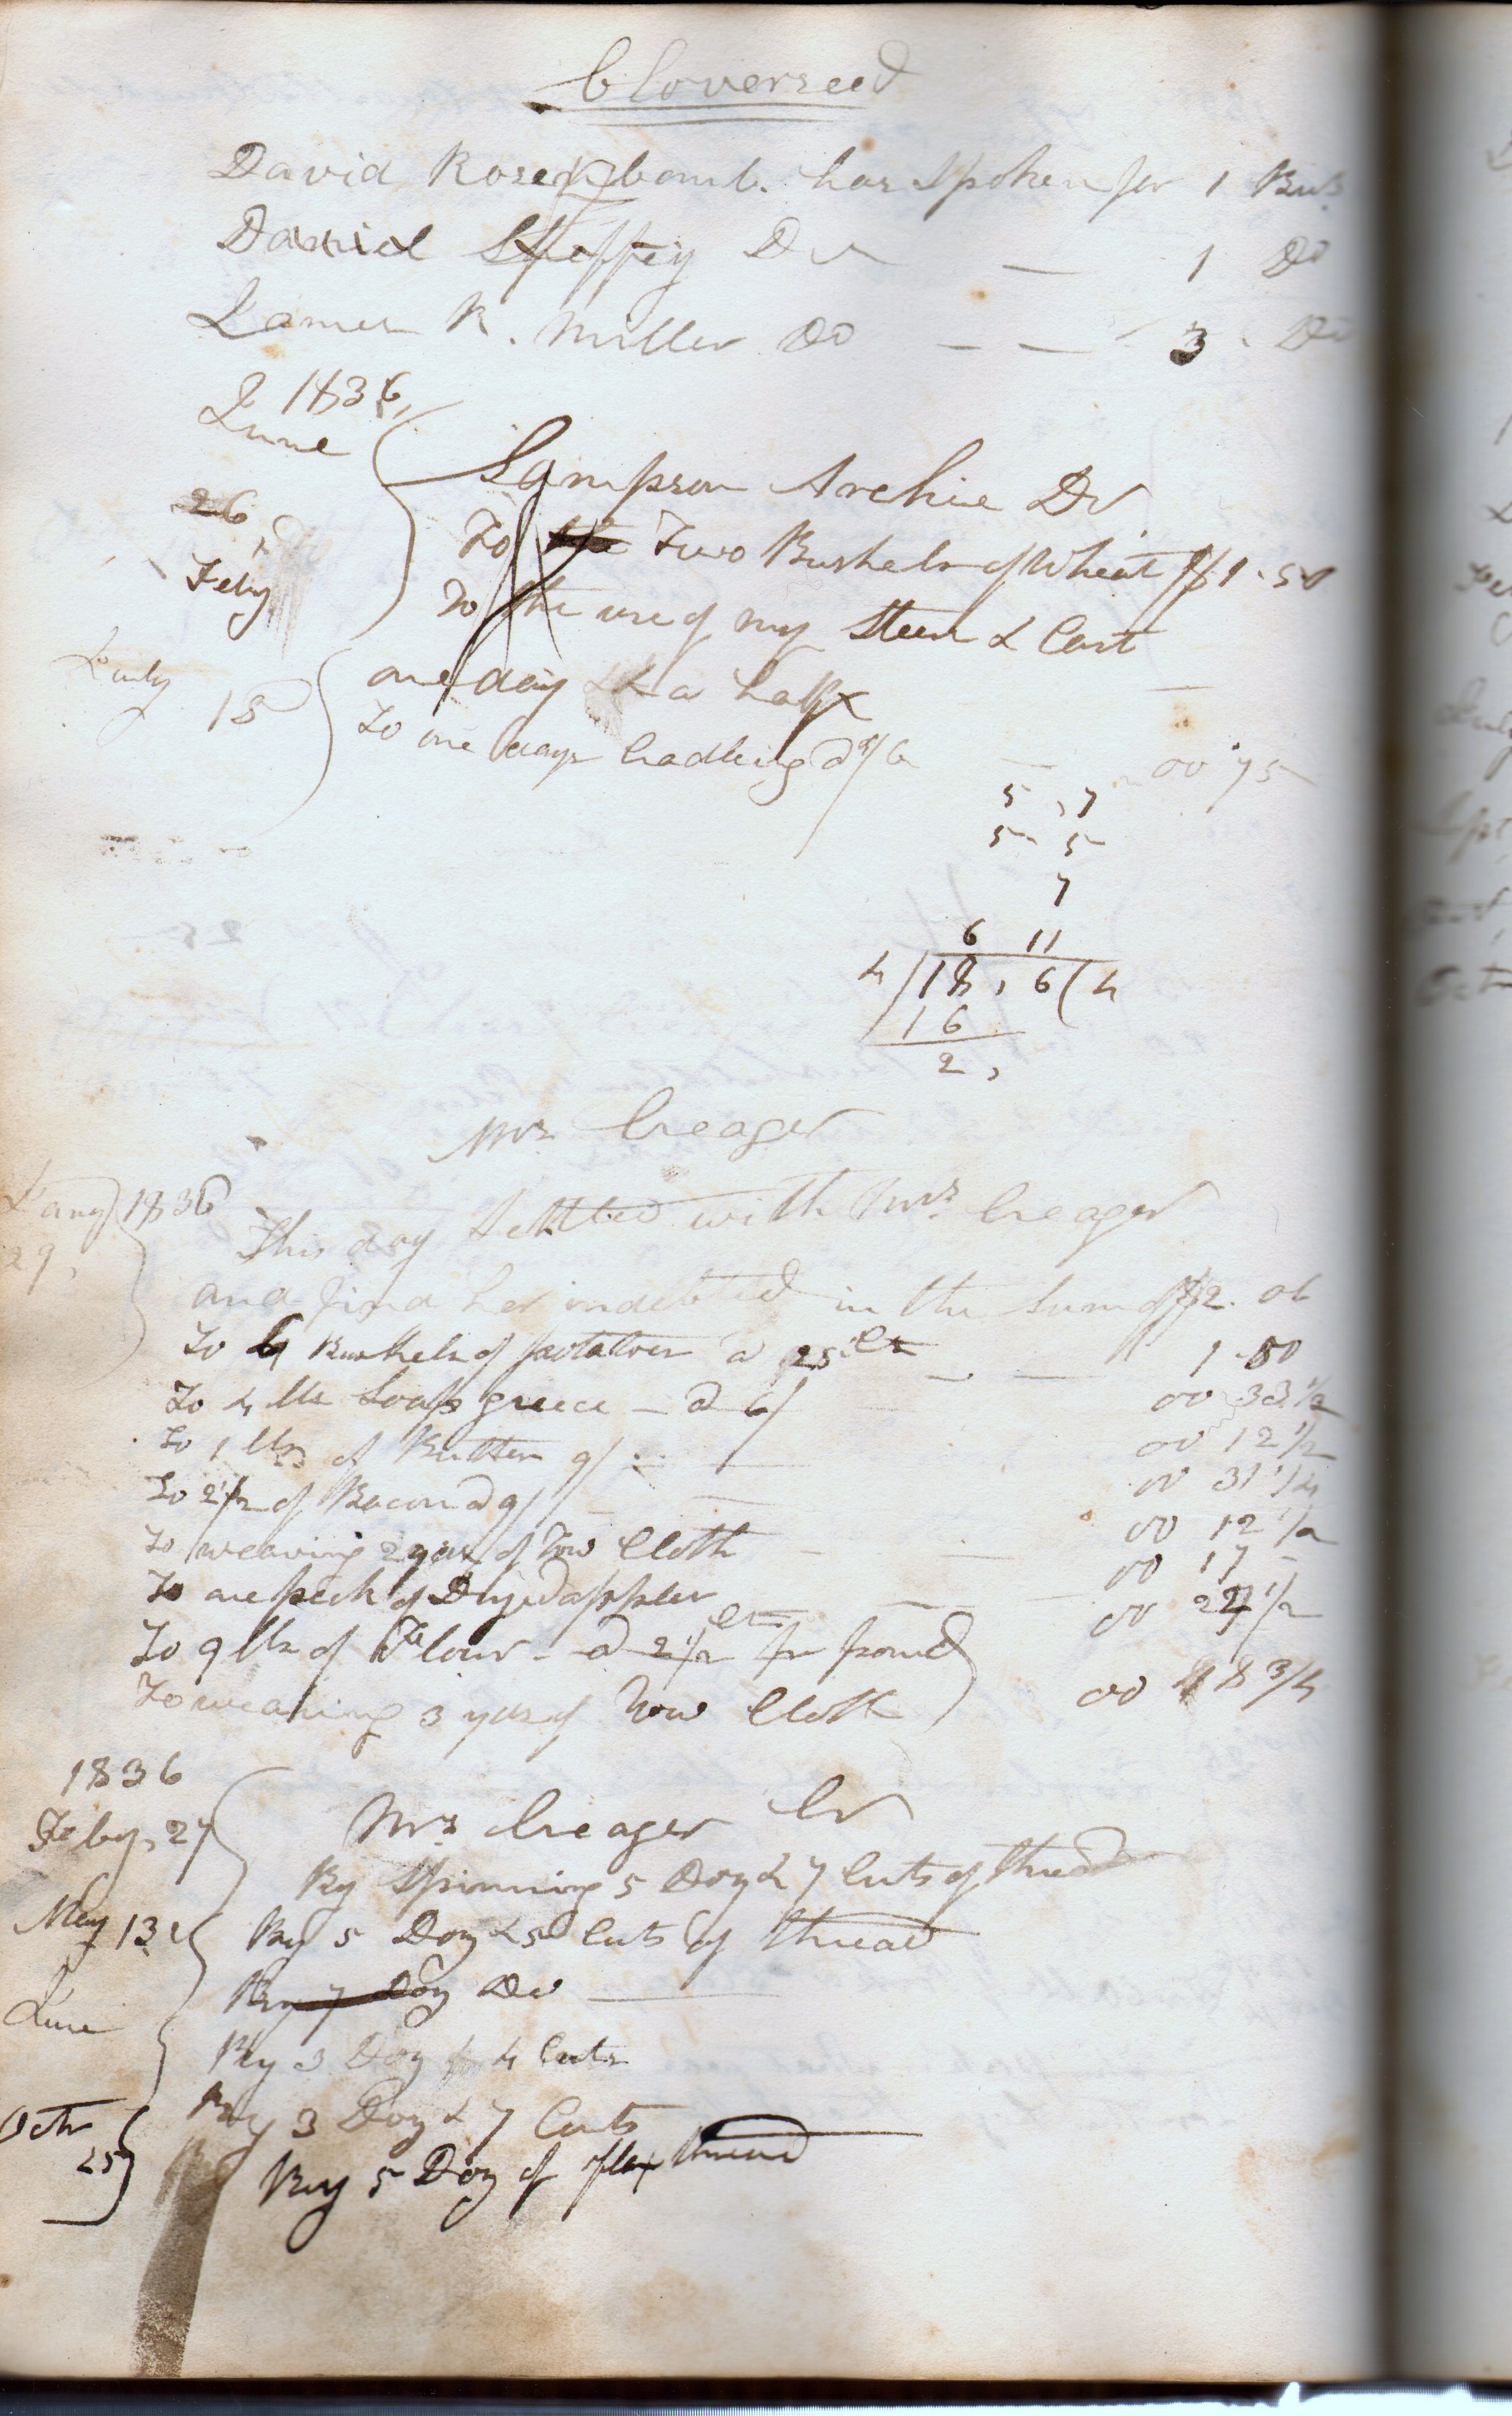 Cloverseed
David Rosenbomb. has Spoken for 1 Bus
David Steffey Do — 1 Do
James R. Miller Do — — 3 Do
1836,
June
Sampson Archie Dr
26,
To Two Bushels of Wheat $1.50
Feby
To the use of my Steers & Cart
one day & a half —
July 18
To one days Cradling @ 4/6 — 00 75
5,7
5 5
7
6 11
4/18,6(4
16
2,
Mrs Creager
Jany 1836
29,
This day Settled with Mrs Creager
and find her indebted in the Sum of $2.06
To 6 Bushels of potatoes a 25 Cts — — 1.50
To 4 lbs Soap greece — @ 6/ 00 33 1/2
To 1 lbs of Butter 9/ — 00 12 1/2
To 2 1/2 of Bacon @ 9/ — 00 31 1/4
To weaving 2 yds of Tow Cloth — — 00 12 1/2
To one peck of Dryed apples — 00 17
To 9 lbs of Flour - @ 2 1/2 Cts pr pound 00 22 1/2
To weaving 3 yds of Tow Cloth 00 18 3/4
1836
Feby, 27
Mrs Creager Cr
By Spinning 5 Doz & 7 Cuts of thread
May 13
By 5 Doz & 5 Cuts of thread
By 7 Doz Do —
June
By 3 Doz & 4 Cuts
By 3 Doz & 7 Cuts
Octr
25
By 5 Doz of flax thread